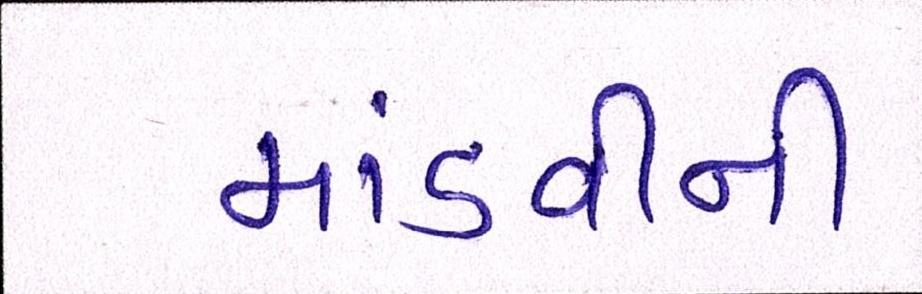 માંડવીની